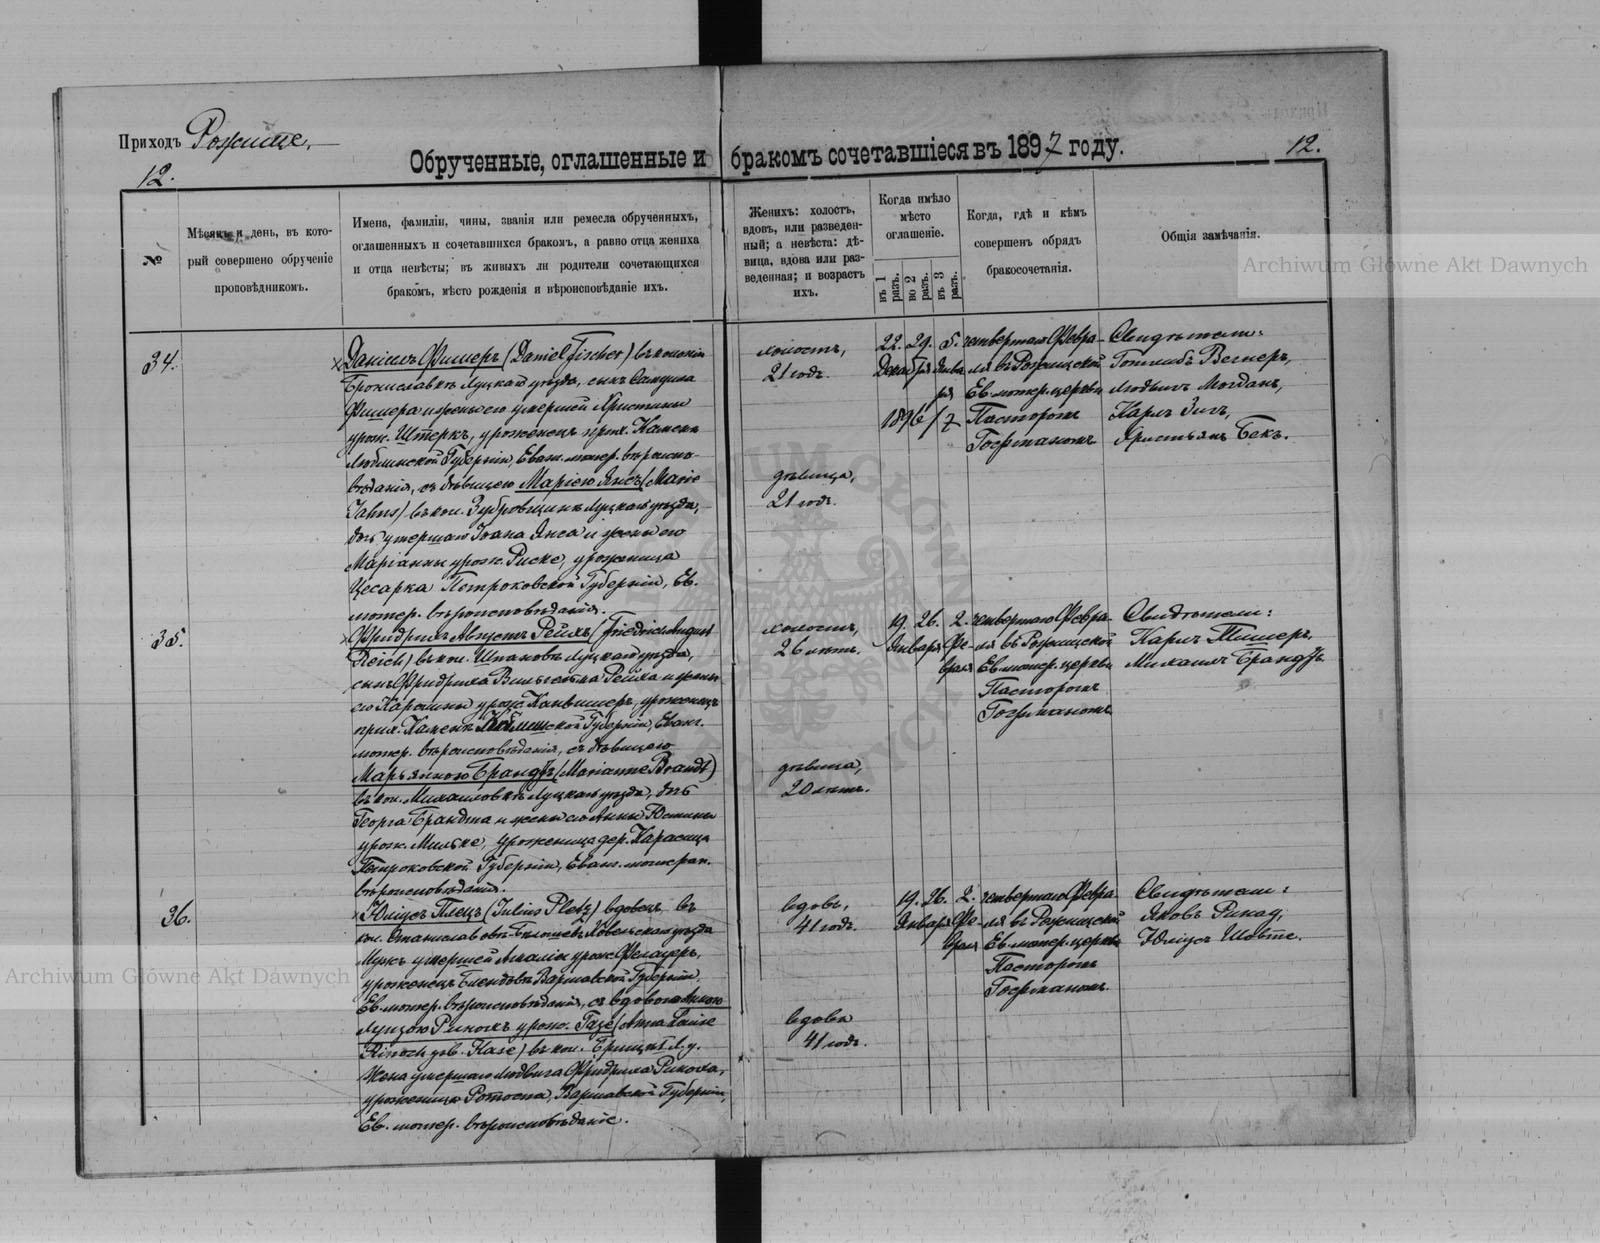 Приходъ Рожище,
Обрученные, оглашенные и бракомъ сочетавшіеся въ 1897 году.
12.
12.
№
Мѣсяцъ и день, въ кото-
рый совершено обрученіе
проповѣдникомъ.
Имена, фамиліи, чины, званія или ремесла обрученныхъ,
оглашенныхъ и сочетавшихся бракомъ, а равно отца жениха
и отца невѣсты; въ живыхъ ли родители сочетающихся
бракомъ, мѣсто рожденія и вѣроисповѣданіе ихъ.
Женихъ: холостъ,
вдовъ, или разведен-
ный; а невѣста: дѣ-
вица, вдова или раз-
веденная; и возрастъ
ихъ.
Когда имѣло
мѣсто
оглашеніе.
въ 1 разъ.
во 2 разъ.
въ 3 разъ.
Когда, гдѣ и кѣмъ
совершенъ обрядъ
бракосочетанія.
Общія замѣчанія.
Archiwum Główne Akt Dawnych
34.
Даніилъ Фишеръ (Daniel Fischer) въ колоніи
Брониславкѣ Луцкаго уѣзда, сынъ
Фишера и жены его умершей Христины
урож. Штеркъ, уроженецъ прих. Каменъ
Люблинской Губерніи, Еван. лютер. вѣроиспо-
вѣданія, съ дѣвицею Маріею Янсъ (Marie
Jahns) въ кол. Зубровщинѣ Луцкаго уѣзда,
дочь умершаго Іоана Янса и жены его
Маріанны урож. Риске, уроженица
Цесарка Петроковской Губерніи, Ев.
лютер. вѣроисповѣданія.
холостъ,
21 годъ.
дѣвица,
21 годъ.
22. 29. 5.
Декабря Янва
ря
1896/7
четвертаго Февра-
ля въ Рожищской
Ев. лютер. церкви
Пасторомъ
Гофманомъ
Свидѣтели:
Готлибъ Вегнеръ,
Людвигъ Могданъ,
Карлъ Зигъ,
Христьянъ Бекъ.
35.
Фридрихъ Августъ Рейхъ (Friedrich August
Reich) въ кол. Шпановъ Луцкаго уѣзда,
сынъ Фридриха Вильгельма Рейха и жены
его Каролины урож. уроженецъ
прих. Каменъ Губерніи, Еванг.
лютер. вѣроисповѣданія, съ дѣвицею
Марьянною Брандтъ (Marianne Brandt)
въ кол. Михаиловкѣ Луцкаго уѣзда, дочь
Георга Брандта и жены его Анны Юстины
урож. Мильке, уроженица дер.
Петроковской Губерніи, Еванг. лютеран.
вѣроисповѣданія.
холостъ,
26 лѣтъ.
дѣвица,
20 лѣтъ.
19. 26. 2.
Января Фе-
враля
четвертаго Февра-
ля въ Рожищской
Ев. лютер. церкви
Пасторомъ
Гофманомъ
Свидѣтели:
Карлъ Тишлеръ,
Михаилъ Брандтъ
36.
Юліусъ Плецъ (Julius Pletz) вдовецъ, въ
кол. Ковельскаго уѣзда
Мужъ умершей Амаліи урож.
уроженецъ Варшавской Губерніи,
Ев. лютер. вѣроисповѣданія, съ вдовою Анною
Луизою Ринохъ урож. Газе (Anna Louise
Rinoch geb. Hase) въ кол. Л. у.
Жена умершаго Людвига Фридриха Риноха,
уроженица Варшавской Губерніи,
Ев. лютер. вѣроисповѣданіе.
вдовъ,
41 годъ.
вдова
41 годъ.
19. 26. 2.
Января Фе-
враля
четвертаго Февра-
ля въ Рожищской
Ев. лютер. церкви
Пасторомъ
Гофманомъ.
Свидѣтели:
Яковъ
Юліусъ
Archiwum Główne Akt Dawnych